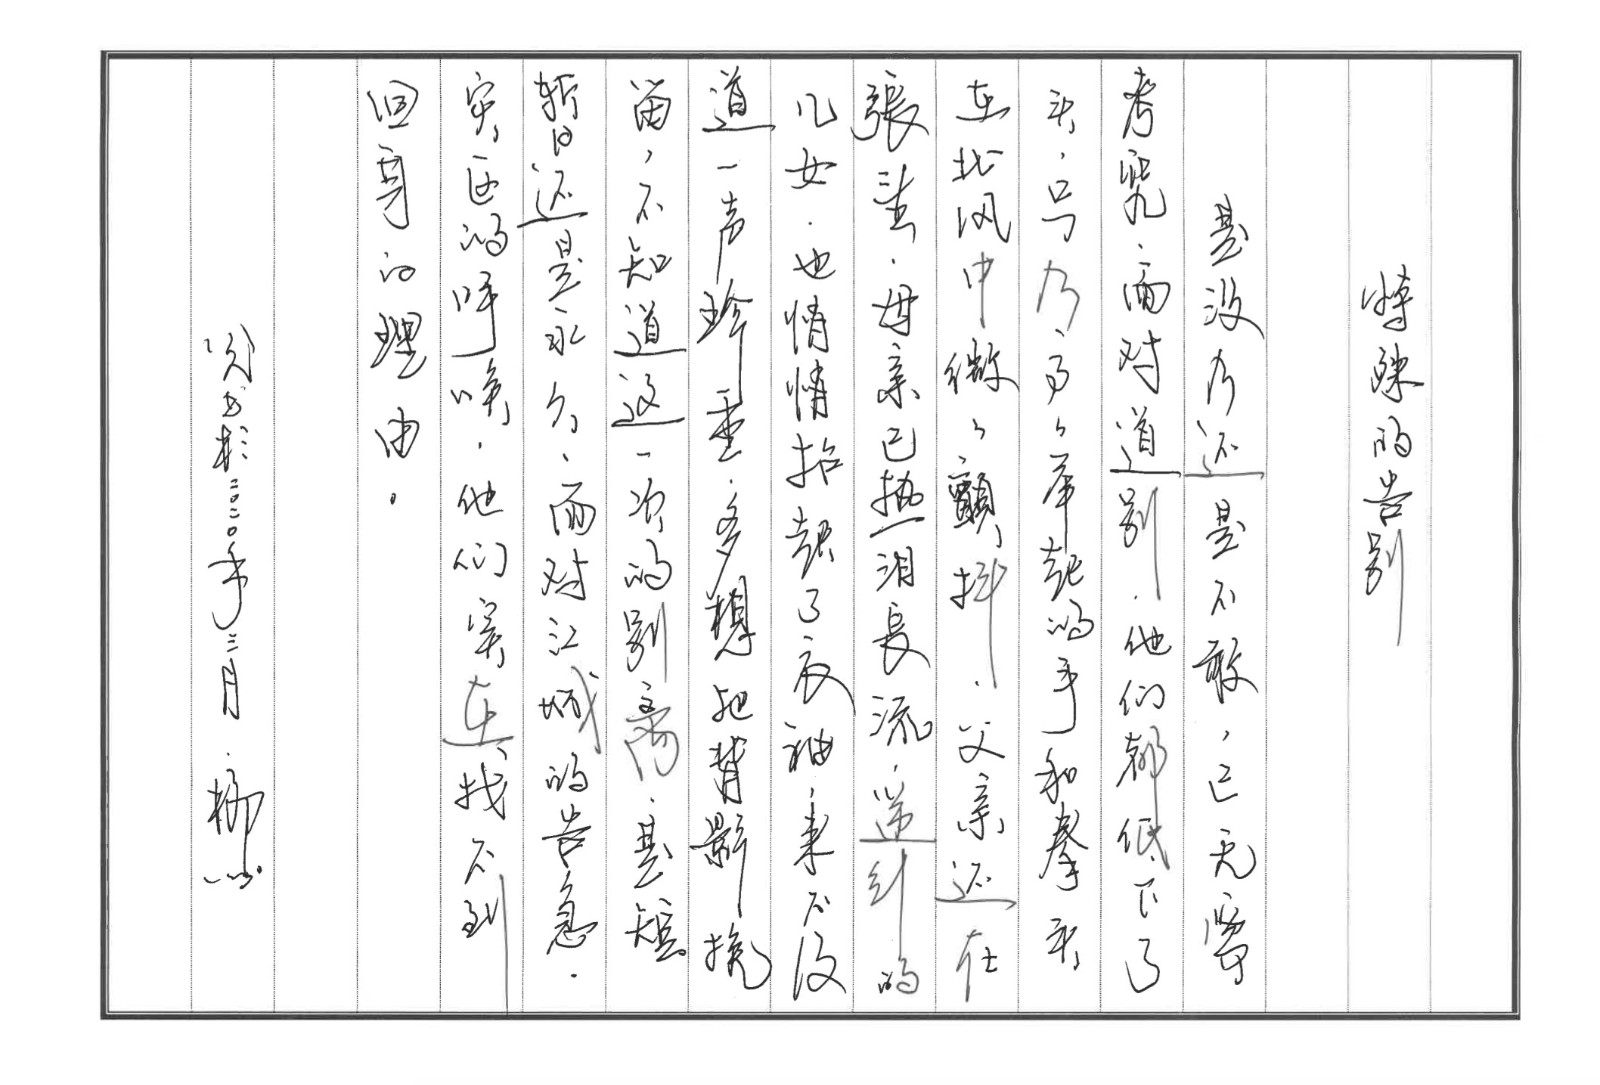 特殊的告别
是没有还是不敢，已无需
考究，面对道别，他们都低下了
头，只有高高举起的手和拳头
在北风中微微颤抖，父亲还在
張望，母亲已热泪長流，逆行的
儿女，也悄悄抬起了衣袖，来不及
道一声珍重，多想把背影挽
留，不知道这一次的别离，是短
暂还是永久，面对江城的告急，
实，的呼唤，他们实在找不到
回身的理由。
二〇二〇年二月